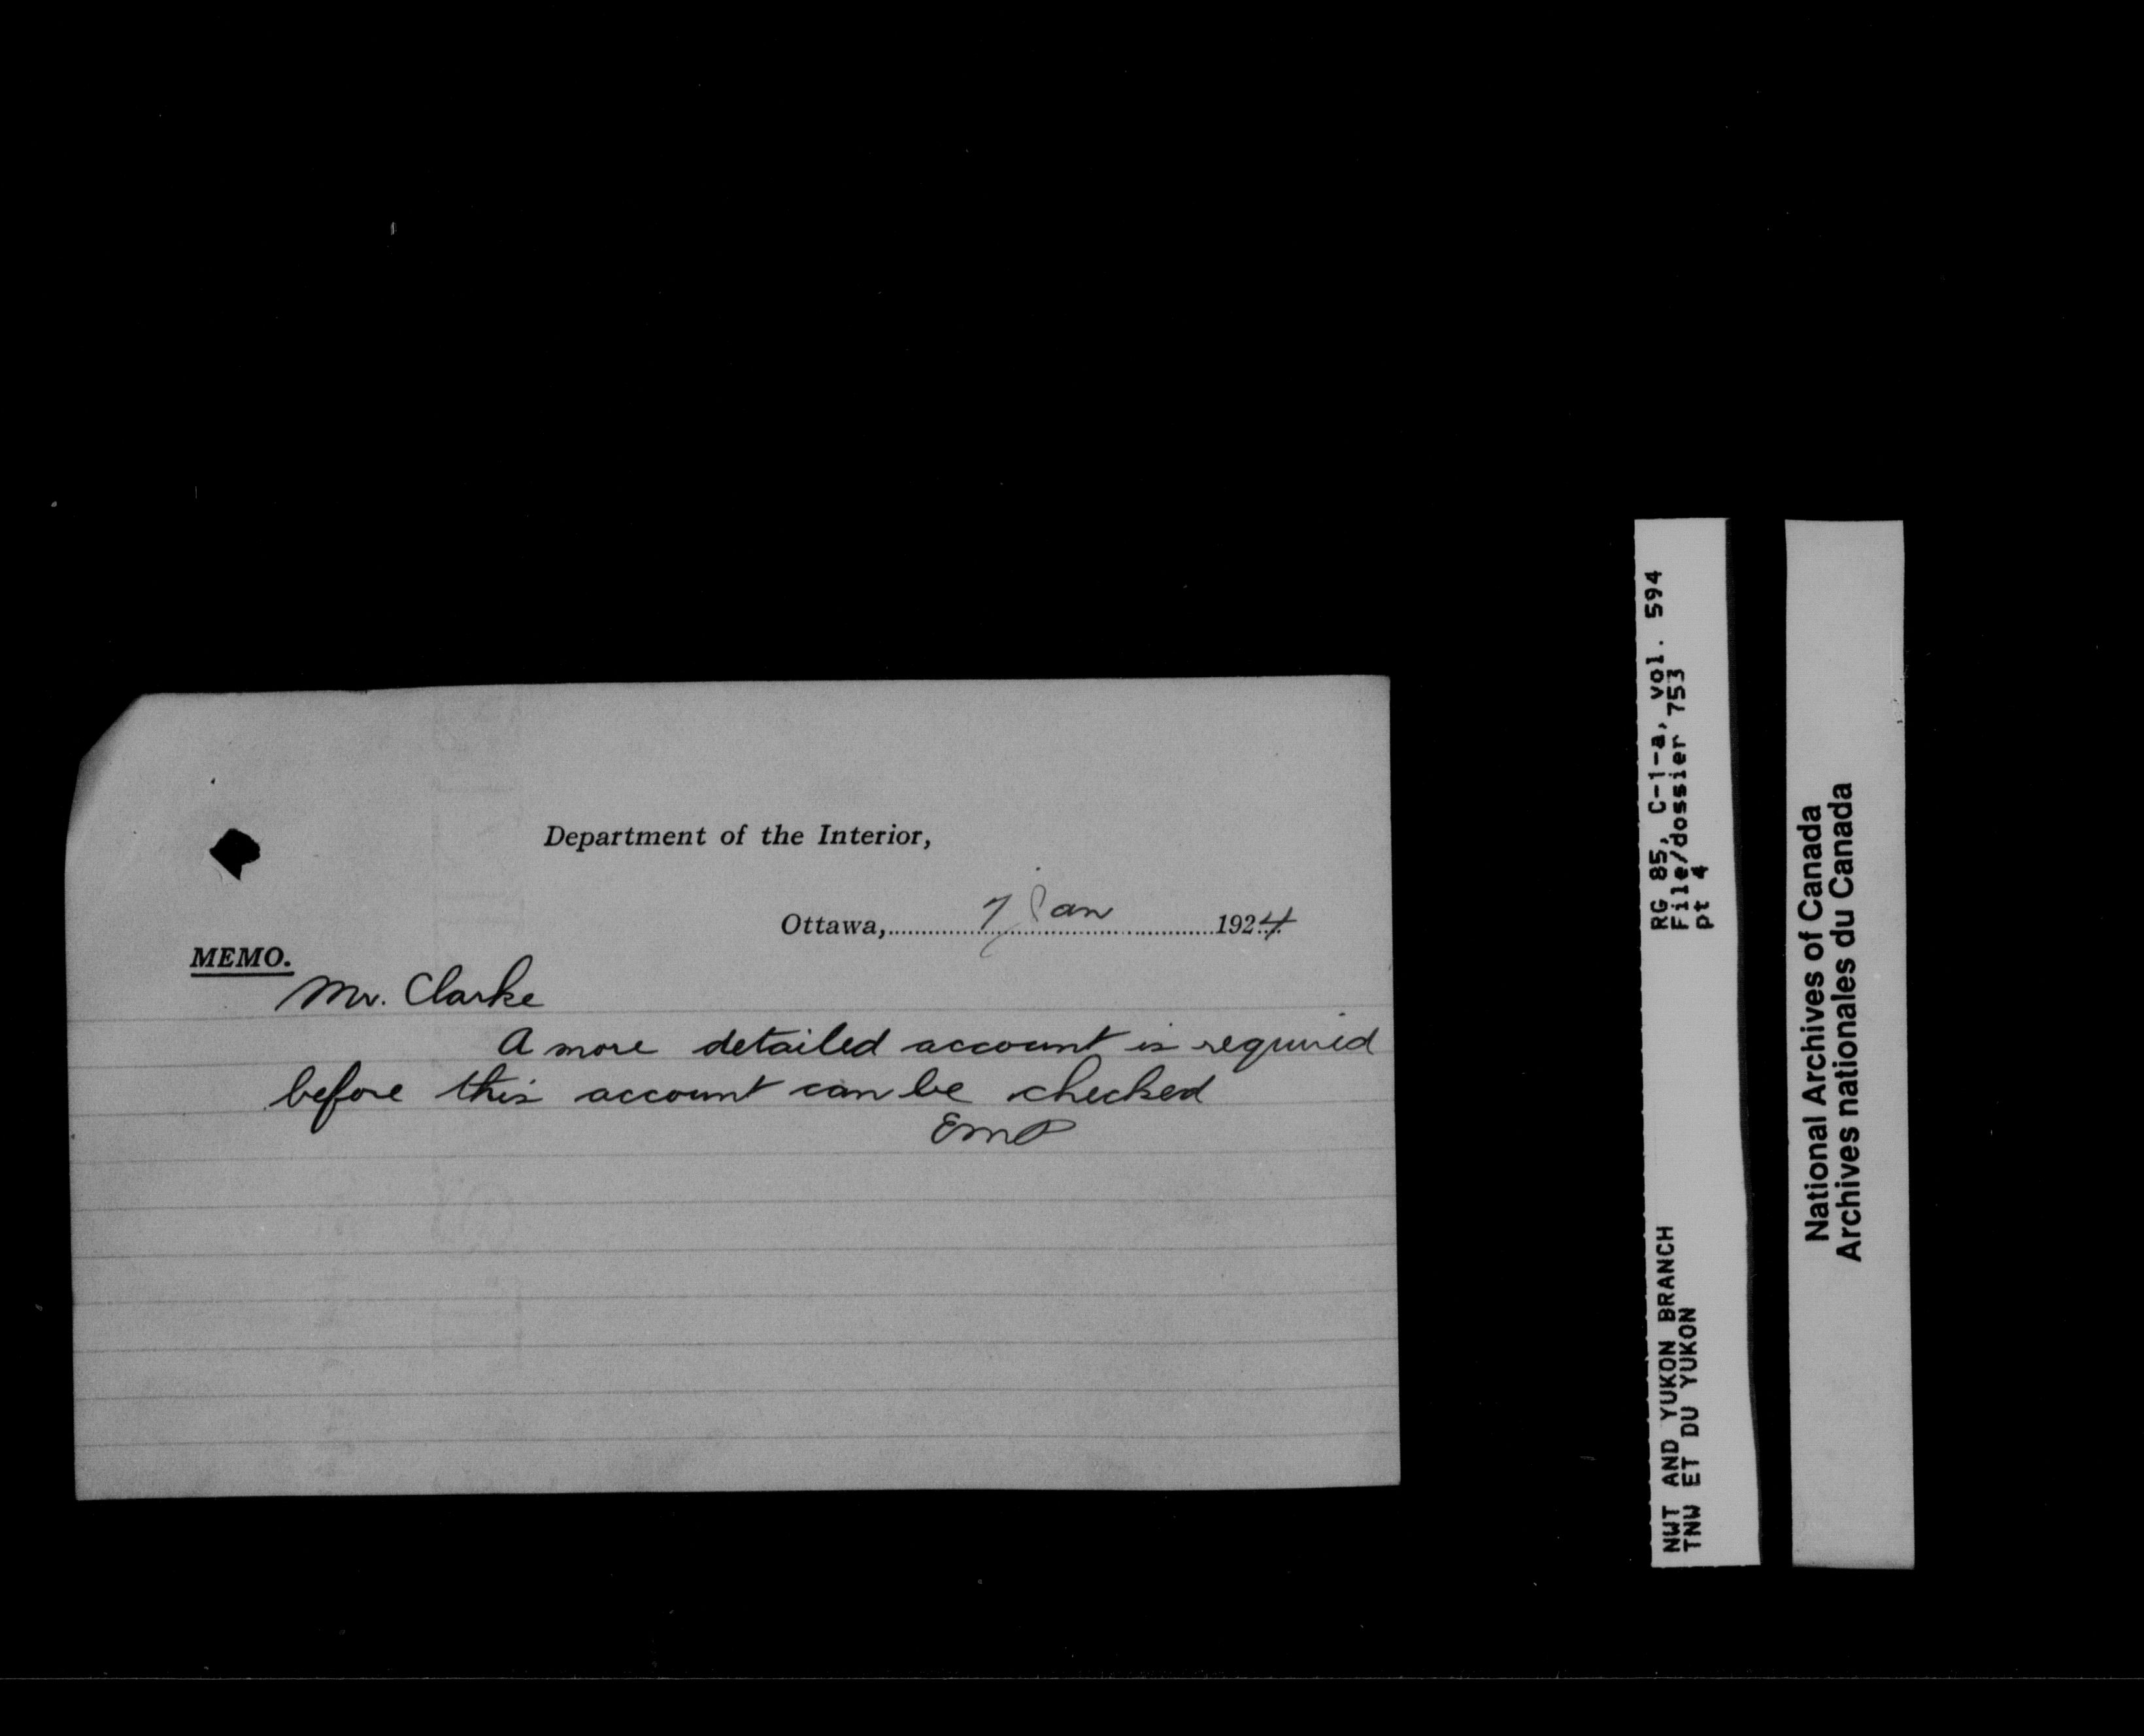 Department of the Interior,
Ottawa, 7 Jan 1924
MEMO.
Mr. Clarke
A more detailed account is required
before this account can be checked
EMP
RG 85, C-1-a, vol. 594
File/dossier 753
pt 4
NWT AND YUKON BRANCH
TNW ET DU YUKON
National Archives of Canada
Archives nationales du Canada